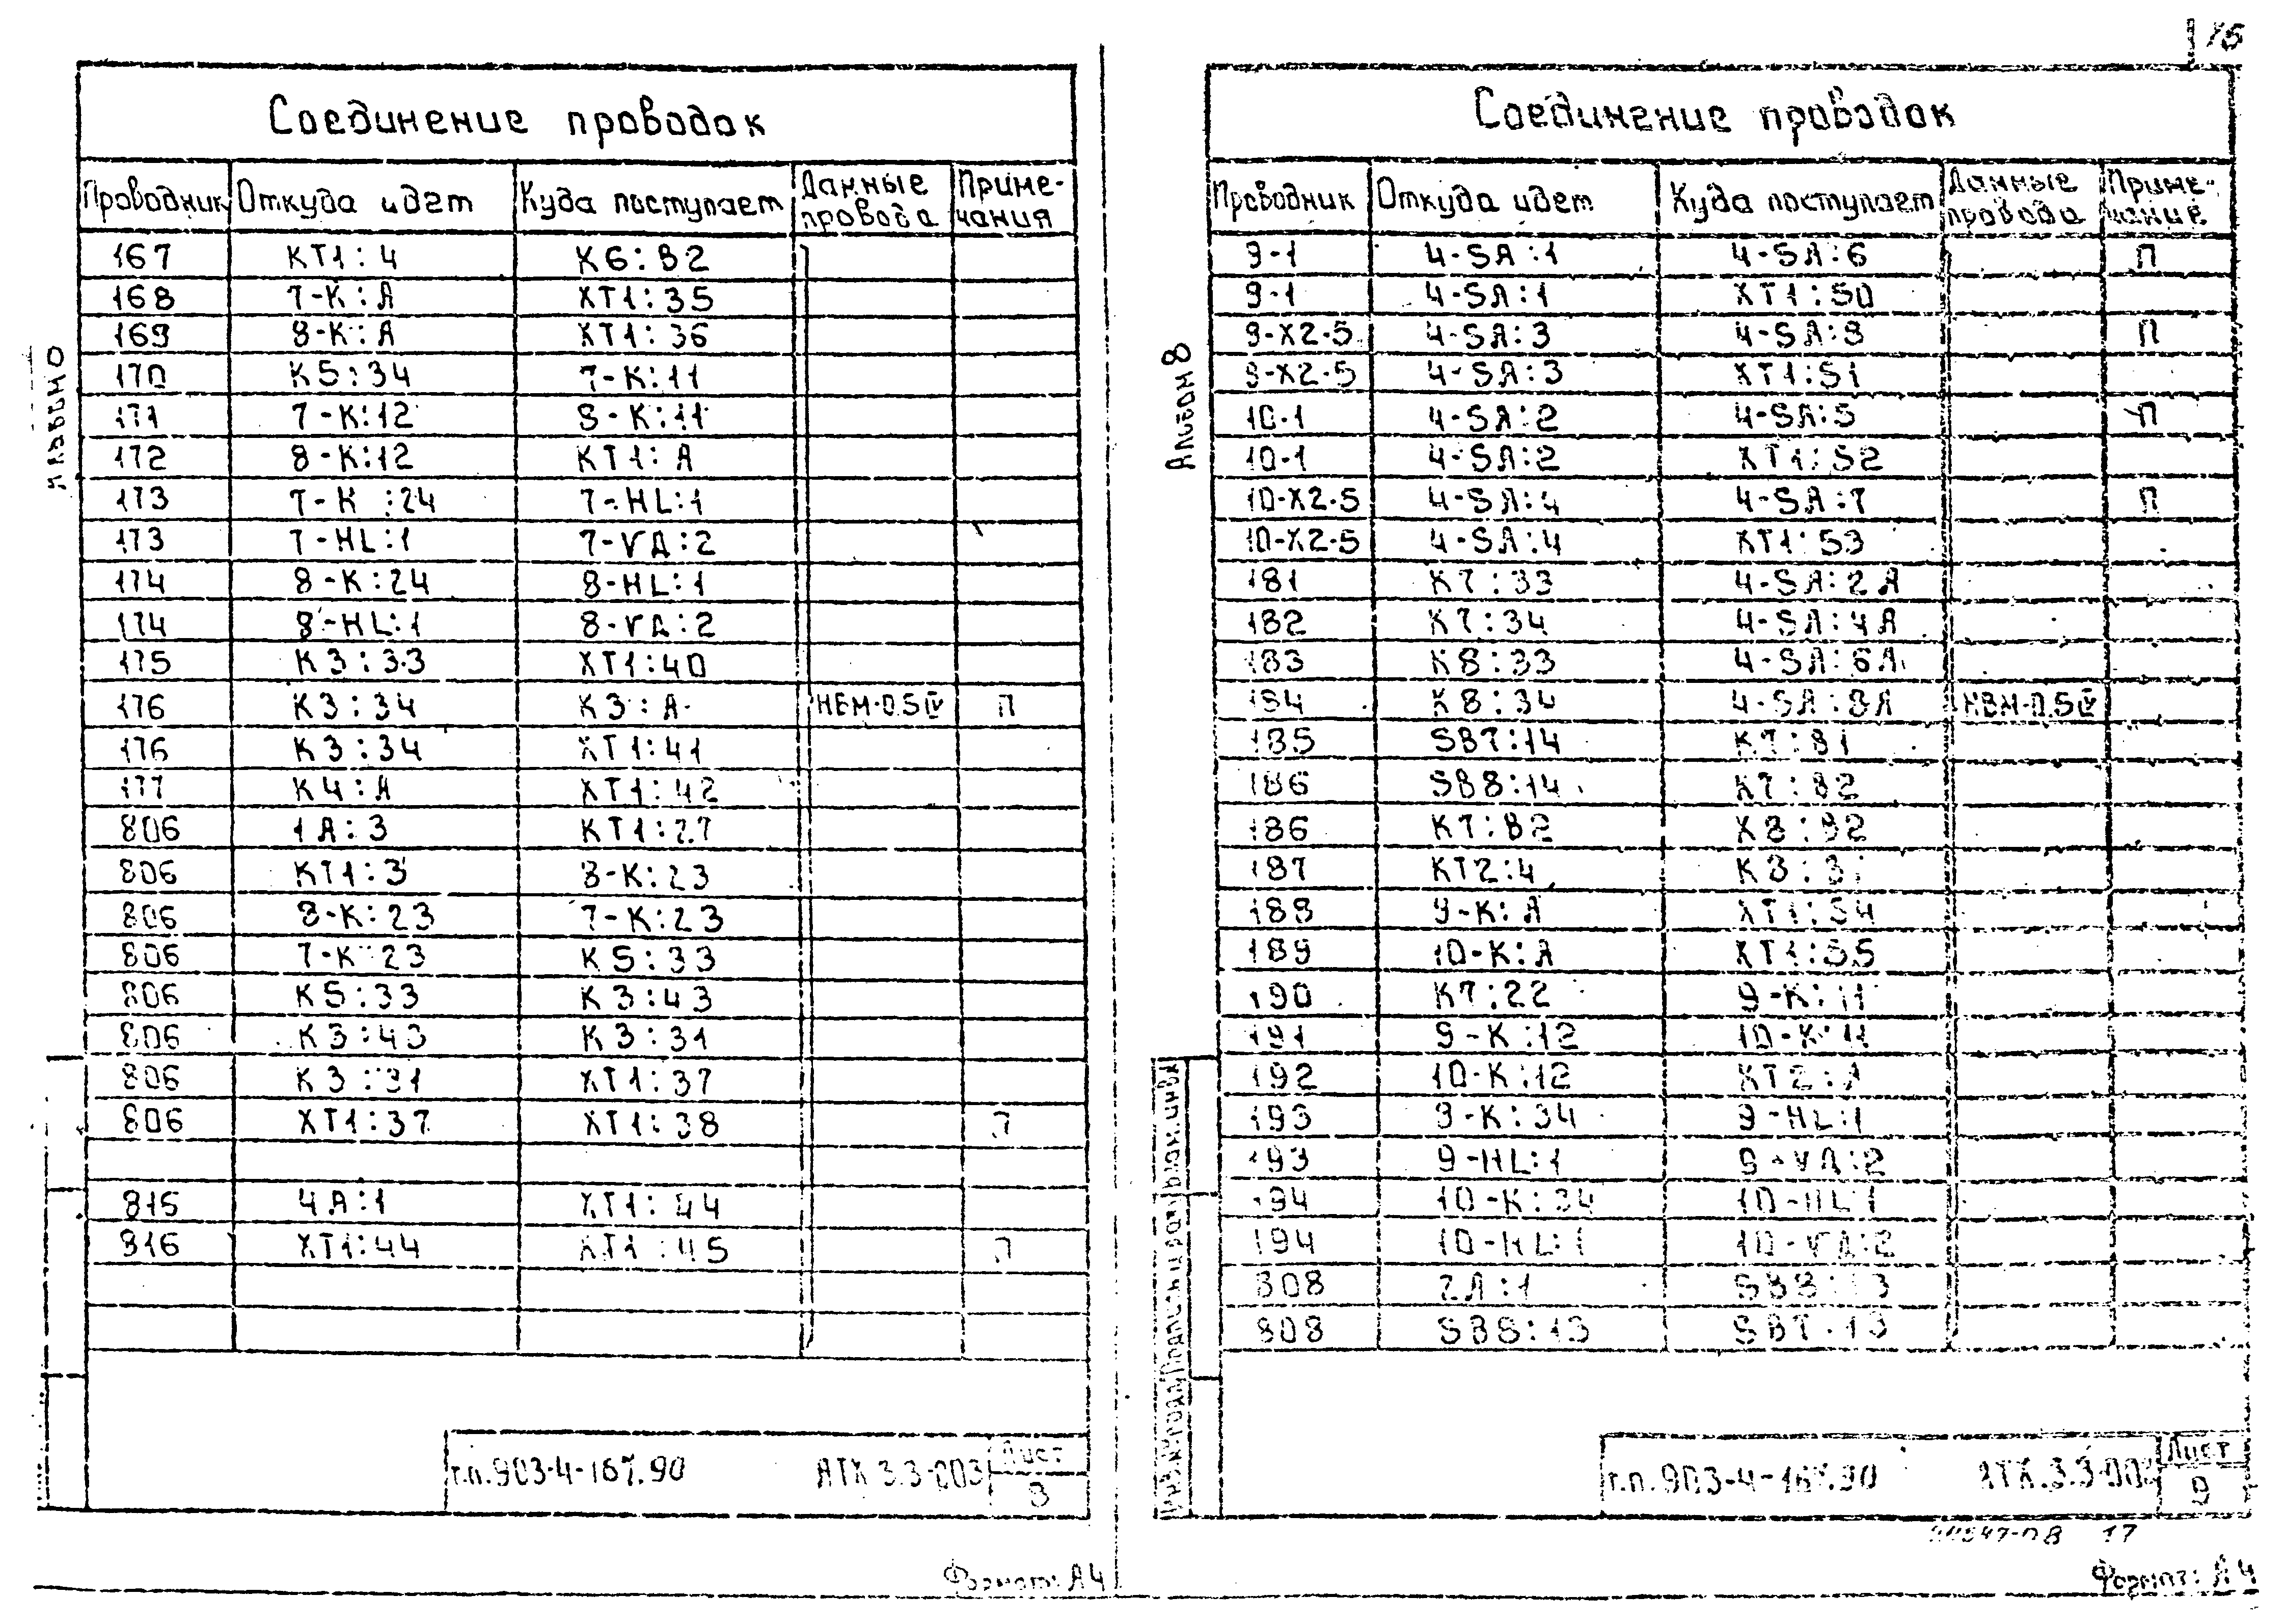 Соединение проводок
Проводник Откуда идет Куда поступает Данные провода Приме-чания
167 КТ1:4 К6:В2
168 7-К:А ХТ1:35
169 8-К:А ХТ1:36
170 К5:34 7-К:11
171 7-К:12 8-К:11
172 8-К:12 КТ1:А
173 7-К :24 7-HL:1
173 7-HL:1 7-VД:2
174 8-К:24 8-HL:1
174 8-HL:1 8-VД:2
175 К3:33 ХТ1:40
176 К3:34 К3:А НВМ-0.5 IV П
176 К3:34 ХТ1:41
177 К4:А ХТ1:42
806 1А:3 КТ1:27
806 КТ1:3 8-К:23
806 8-К:23 7-К:23
806 7-К:23 К5:33
806 К5:33 К3:43
806 К3:43 К3:31
806 К3:31 ХТ1:37
806 ХТ1:37 ХТ1:38 П
815 4А:1 ХТ1:44
816 ХТ1:44 ХТ1:45 П
т.п.903-4-167.90 АТХ 3.3-003 Лист 8
Формат: А4
16
Альбом 8
Соединение проводок
Проводник Откуда идет Куда поступает Данные провода Приме-чание
9-1 4-SA:1 4-SA:6 П
9-1 4-SA:1 ХТ1:50
9-Х2-5 4-SA:3 4-SA:8 П
9-Х2-5 4-SA:3 ХТ1:51
10-1 4-SA:2 4-SA:5 П
10-1 4-SA:2 ХТ1:52
10-Х2-5 4-SA:4 4-SA:7 П
10-Х2-5 4-SA:4 ХТ1:53
181 К7:33 4-SA:2А
182 К7:34 4-SA:4А
183 К8:33 4-SA:6А
184 К8:34 4-SA:8А НВМ-0.5 IV
185 SB7:14 К7:В1
186 SB8:14 К7:В2
186 К7:В2 К8:В2
187 КТ2:4
188 9-К:А ХТ1:54
189 10-К:А ХТ1:55
190 К7:22 9-К:11
191 9-К:12 10-К:11
192 10-К:12 КТ2:А
193 9-К:34 9-HL:1
193 9-HL:1 9-VД:2
194 10-К:34 10-HL:1
194 10-HL:1 10-VД:2
808 2А:1 SB8:13
808 SB8:13 SB7:13
т.п.903-4-167.90 АТХ.3.3-003 Лист 9
17
Формат: А4